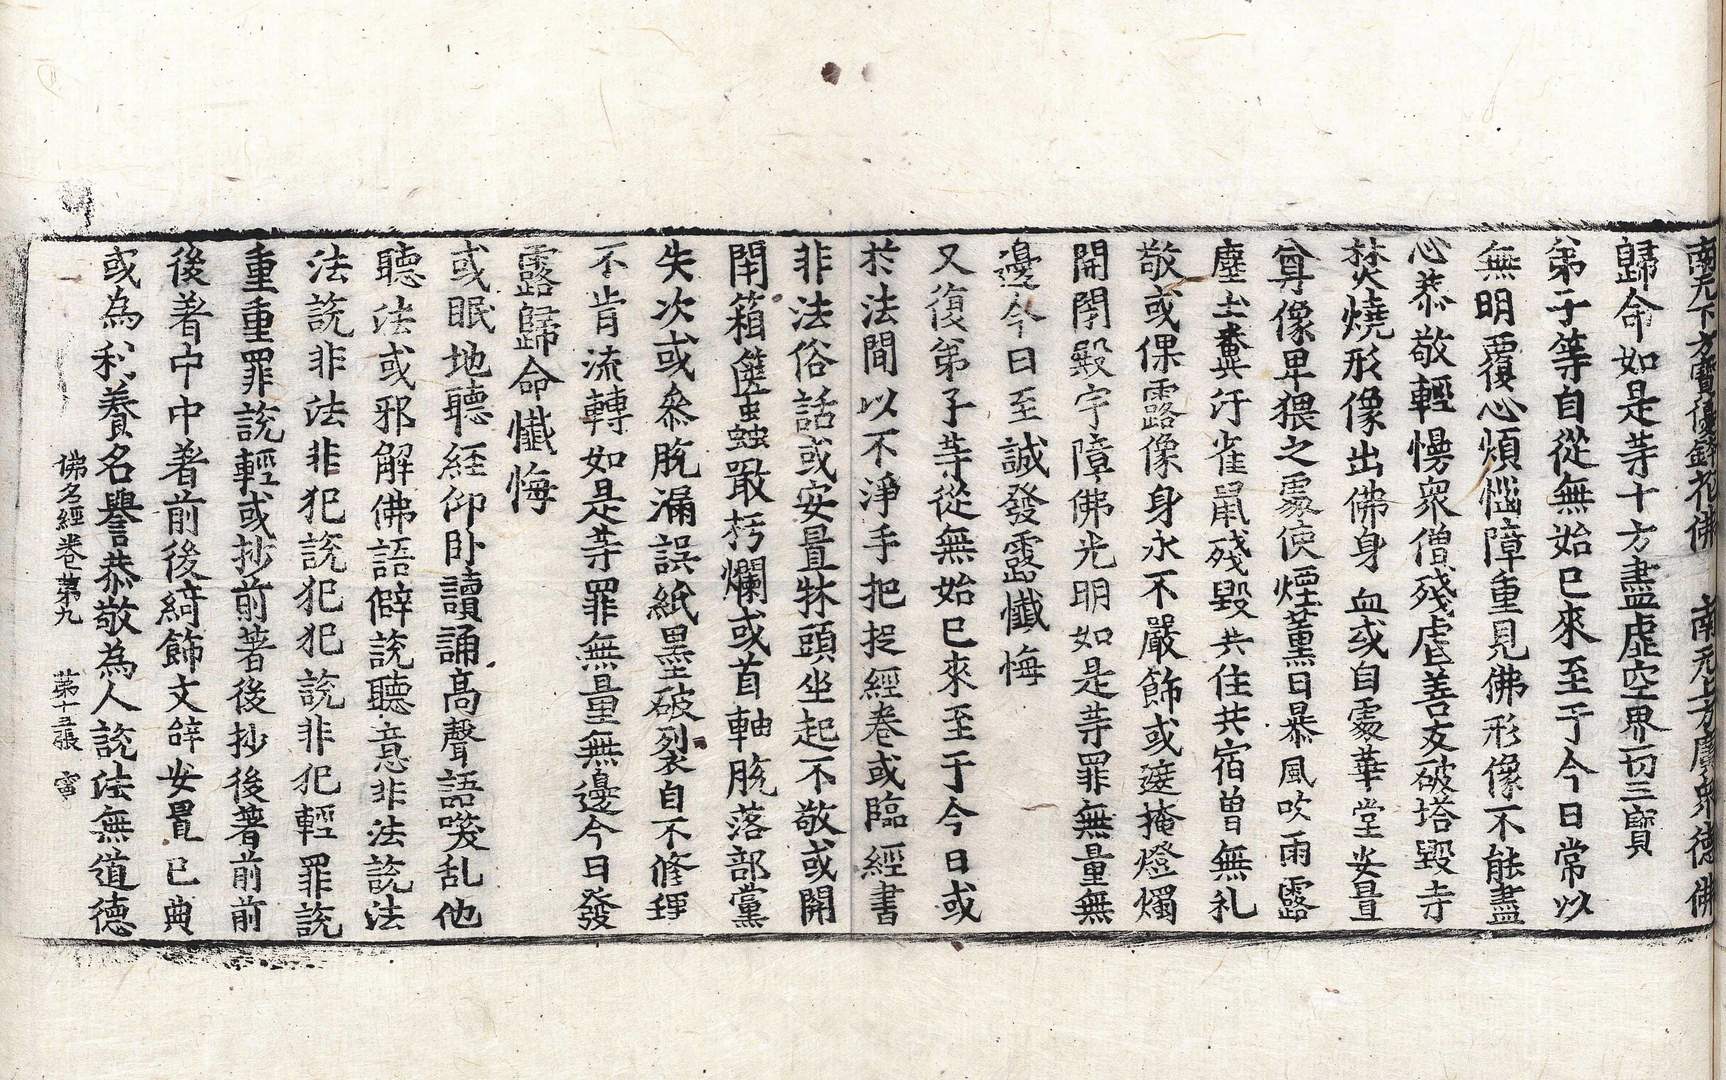 南无下方寶優鉢花佛　南无上方廣衆德佛
歸命如是等十方盡虛空界一切三寶
弟子等自從無始已來至于今日常以
無明覆心煩惱障重見佛形像不能盡
心恭敬輕慢衆僧殘虐善友破塔毀寺
焚燒形像出佛身血或自處華堂安置
尊像卑猥之處使煙薰日暴風吹雨露
塵土糞汙雀鼠殘毀共住共宿曾無礼
敬或倮露像身永不嚴飾或遮掩燈燭
開閉殿宇障佛光明如是等罪無量無
邊今日至誠發露懺悔
又復弟子等從無始已來至于今日或
於法間以不淨手把捉經卷或臨經書
非法俗話或安置牀頭坐起不敬或開
閉箱篋虫蟲噉朽爛或首軸脫落部黨
失次或桊脫漏誤紙墨破裂自不修理
不肯流轉如是等罪無量無邊今日發
露歸命懺悔
或眠地聽経仰卧讀誦高聲語咲乱他
聽法或邪解佛語僻說聽意非法說法
法說非法非犯說犯犯說非犯輕罪說
重重罪說輕或抄前著後抄後著前前
後著中中著前後綺飾文辝安置己典
或為利養名譽恭敬為人說法無道德
佛名經卷第九　第十五張